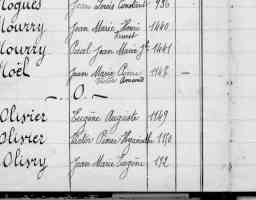 Nogues Jean Louis Constant 936
Mourry Jean Marie Henri 1440
Ernest
Mourry Pascal Jean Marie Jh 1441
Noël Jean Marie Pierre
Victor Armand
O.
Olivier Eugène Auguste 1149
Olivier Victor Pierre Hyacinthe 1150
Olivry Jean Marie Eugène 192